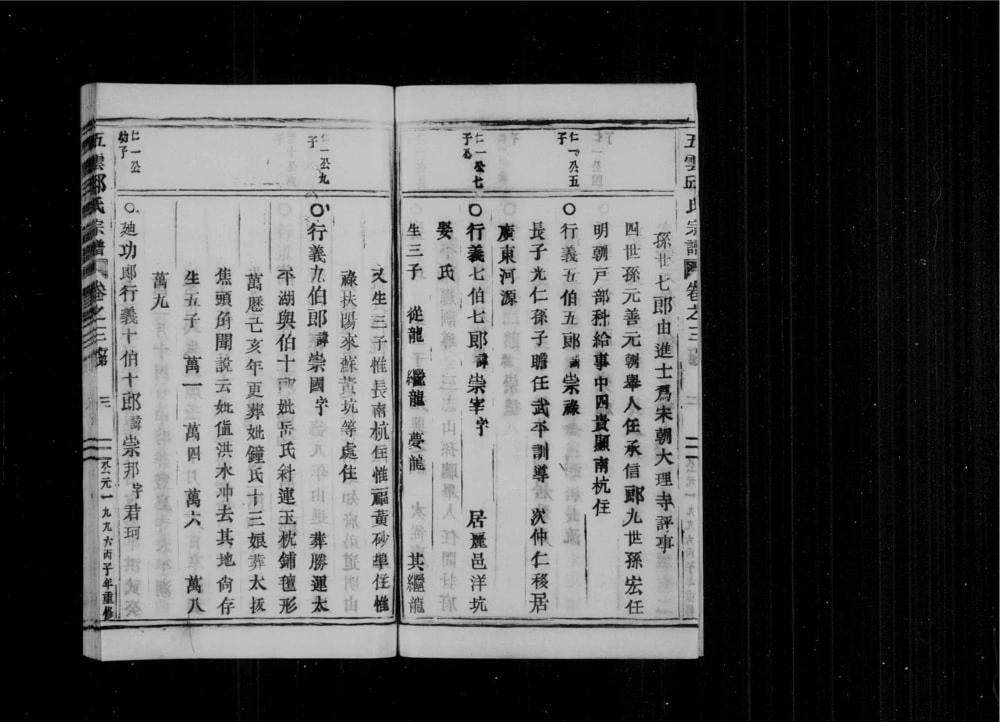 五雲邱氏宗譜 卷之三 二
孫世七郎由進士爲宋朝大理寺評事
四世孫元善元朝舉人任承信郎九世孫宏任
明朝戸部科給事中四貴顯南杭住
仁一公五子
○行義五伯五郎諱崇祿
長子光仁孫子瞻任武平訓導 次仲仁移居
廣東河源
仁一公七子
○行義七伯七郎諱崇宰字 居麗邑洋坑
娶氏
生三子 從龍 繼龍 夢龍 其繼龍
又生三子惟長南杭住惟福黃砂㘵住惟
祿扶陽來蘇黃坑等處住
仁一公九子
○行義九伯郎諱崇國字 葬勝運太
平湖與伯十郎妣岳氏斜連玉枕鋪氊形
萬厯己亥年更葬妣鐘氏十三娘葬太拔
焦頭角聞說云妣值洪水冲去其地尙存
生五子 萬一 萬四 萬六 萬八
萬九
仁一公幼子
○廸功郎行義十伯十郎諱崇邦字君珂
五雲邱氏宗譜 卷之三 三
公元一九九六丙子年重修